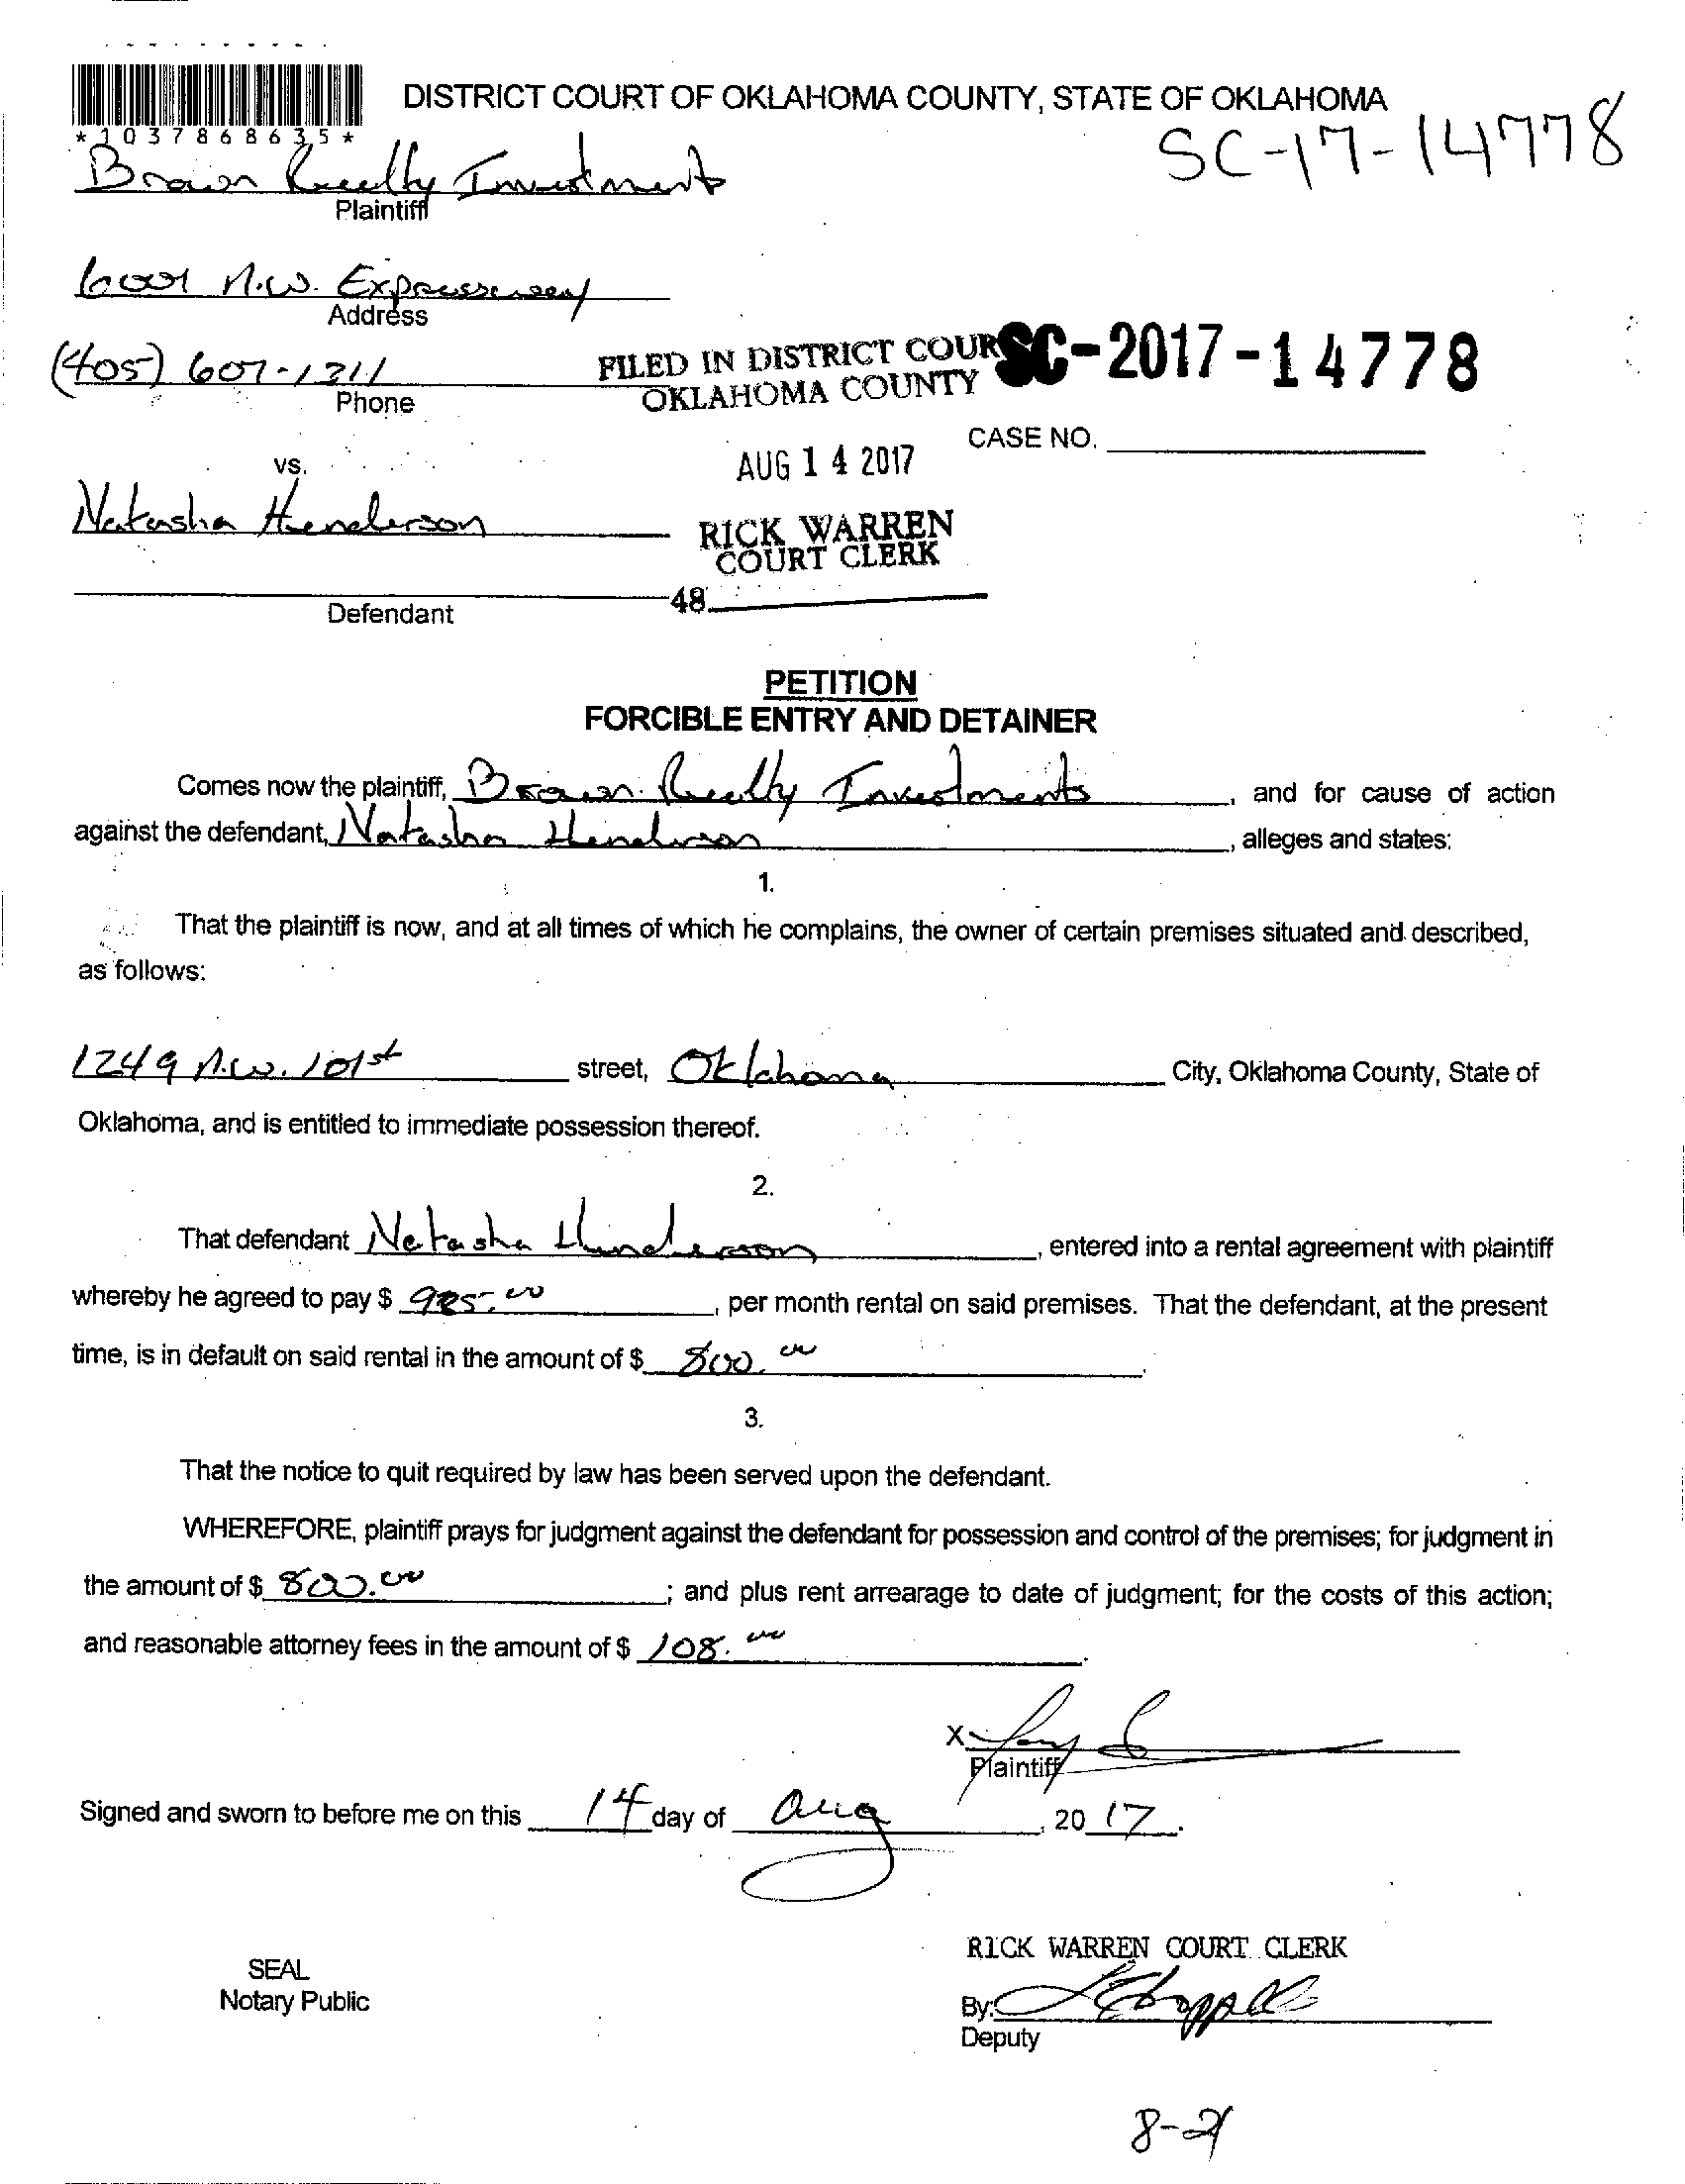 DISTRICT COURT OF OKLAHOMA COUNTY, STATE OF OKLAHOMA
*1037868635*
SC-17-14778
Brown Realty Investments
Plaintiff
6001 N.W. Expressway
Address
(405) 607-1311
Phone
FILED IN DISTRICT COURT
OKLAHOMA COUNTY
SC-2017-14778
CASE NO.
AUG 14 2017
vs.
Natasha Henderson
RICK WARREN
COURT CLERK
48
Defendant
PETITION
FORCIBLE ENTRY AND DETAINER
Comes now the plaintiff, Brown Realty Investments, and for cause of action
against the defendant, Natasha Henderson, alleges and states:
1.
That the plaintiff is now, and at all times of which he complains, the owner of certain premises situated and described,
as follows:
1249 N.W. 101st street, Oklahoma City, Oklahoma County, State of
Oklahoma, and is entitled to immediate possession thereof.
2.
That defendant Natasha Henderson, entered into a rental agreement with plaintiff
whereby he agreed to pay $ , per month rental on said premises. That the defendant, at the present
time, is in default on said rental in the amount of $ 800.00.
3.
That the notice to quit required by law has been served upon the defendant.
WHEREFORE, plaintiff prays for judgment against the defendant for possession and control of the premises; for judgment in
the amount of $ 800.00; and plus rent arrearage to date of judgment; for the costs of this action;
and reasonable attorney fees in the amount of $ 108.00.
X
Plaintiff
Signed and sworn to before me on this 14 day of Aug, 2017.
RICK WARREN COURT CLERK
SEAL
Notary Public
By:
Deputy
8-21